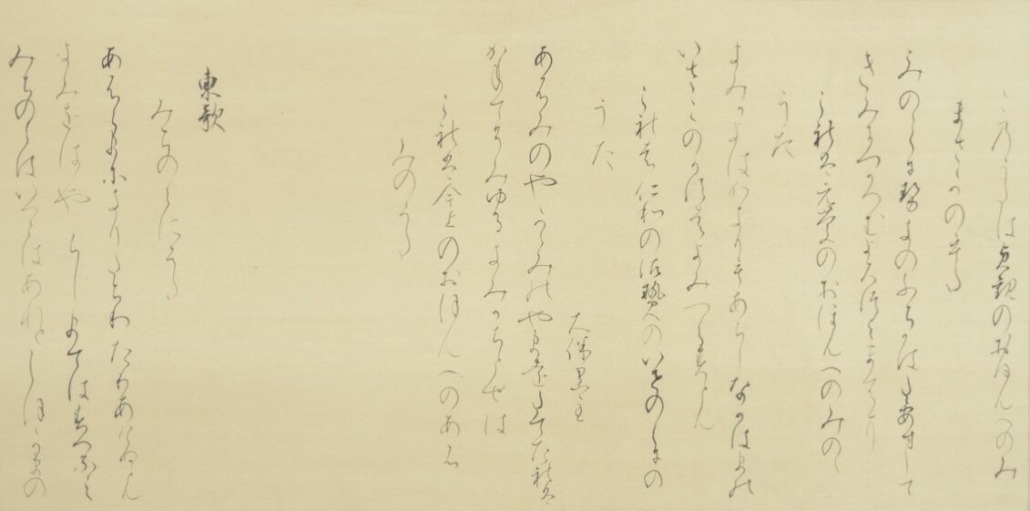 このうたは貞観のおほんへのみ
まさかのうた
みのゝくにせきのふちかはたえすして
きみにつかへむよろつよまてに
これは元慶のおほんへのみのゝ
うた
きみかよはかきりもあらしなかはまの
いさこのかすはよみつくすとも
これは仁和の
いせのくにの
うた
大伴黒主
あふみのやかゝみのやまをたてたれは
かねてそみゆるきみかちとせは
これは今上のおほんへのあふ
みのうた
東歌
みちのくにうた
あふくまにきりたちわたりあけぬとも
きみをはやらしまてはすへなし
みちのくはいつくはあれとしほかまの